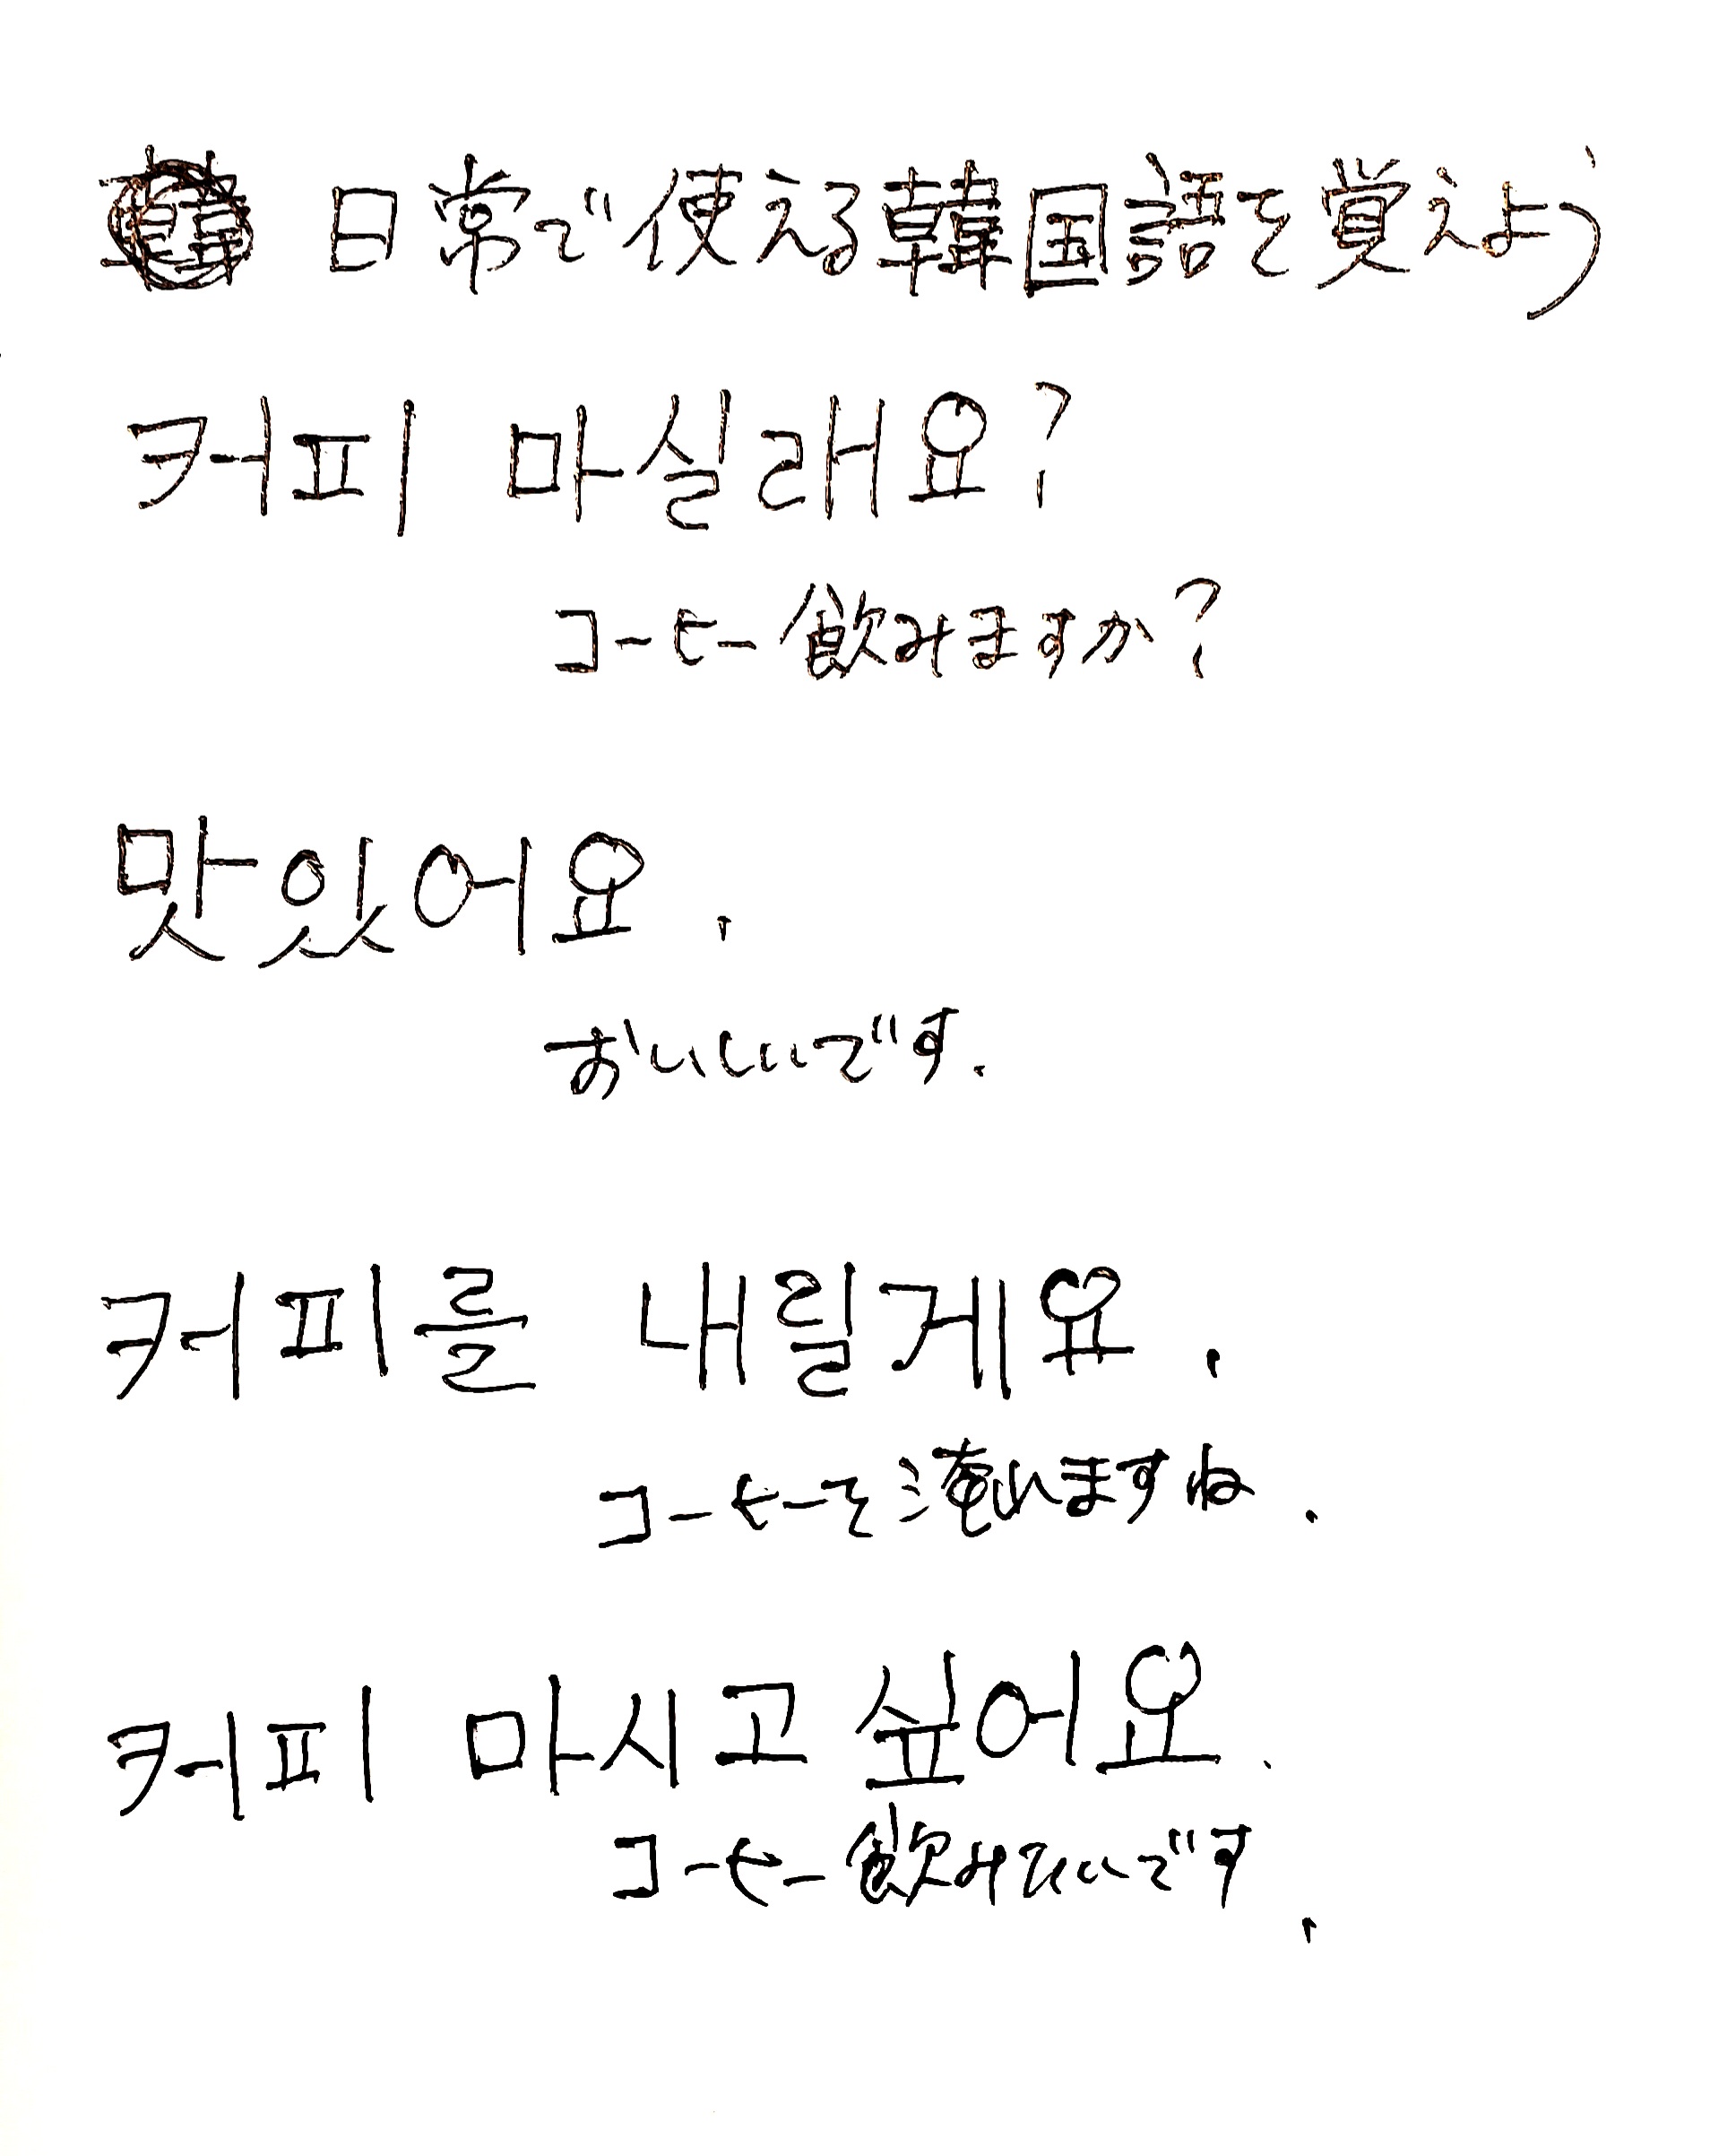 日常で使える韓国語を覚えよう
커피 마실래요?
コーヒー飲みますか?
맛있어요.
おいしいです.
커피를 내릴게요.
コーヒーを淹れますね.
커피 마시고 싶어요.
コーヒー飲みたいです.